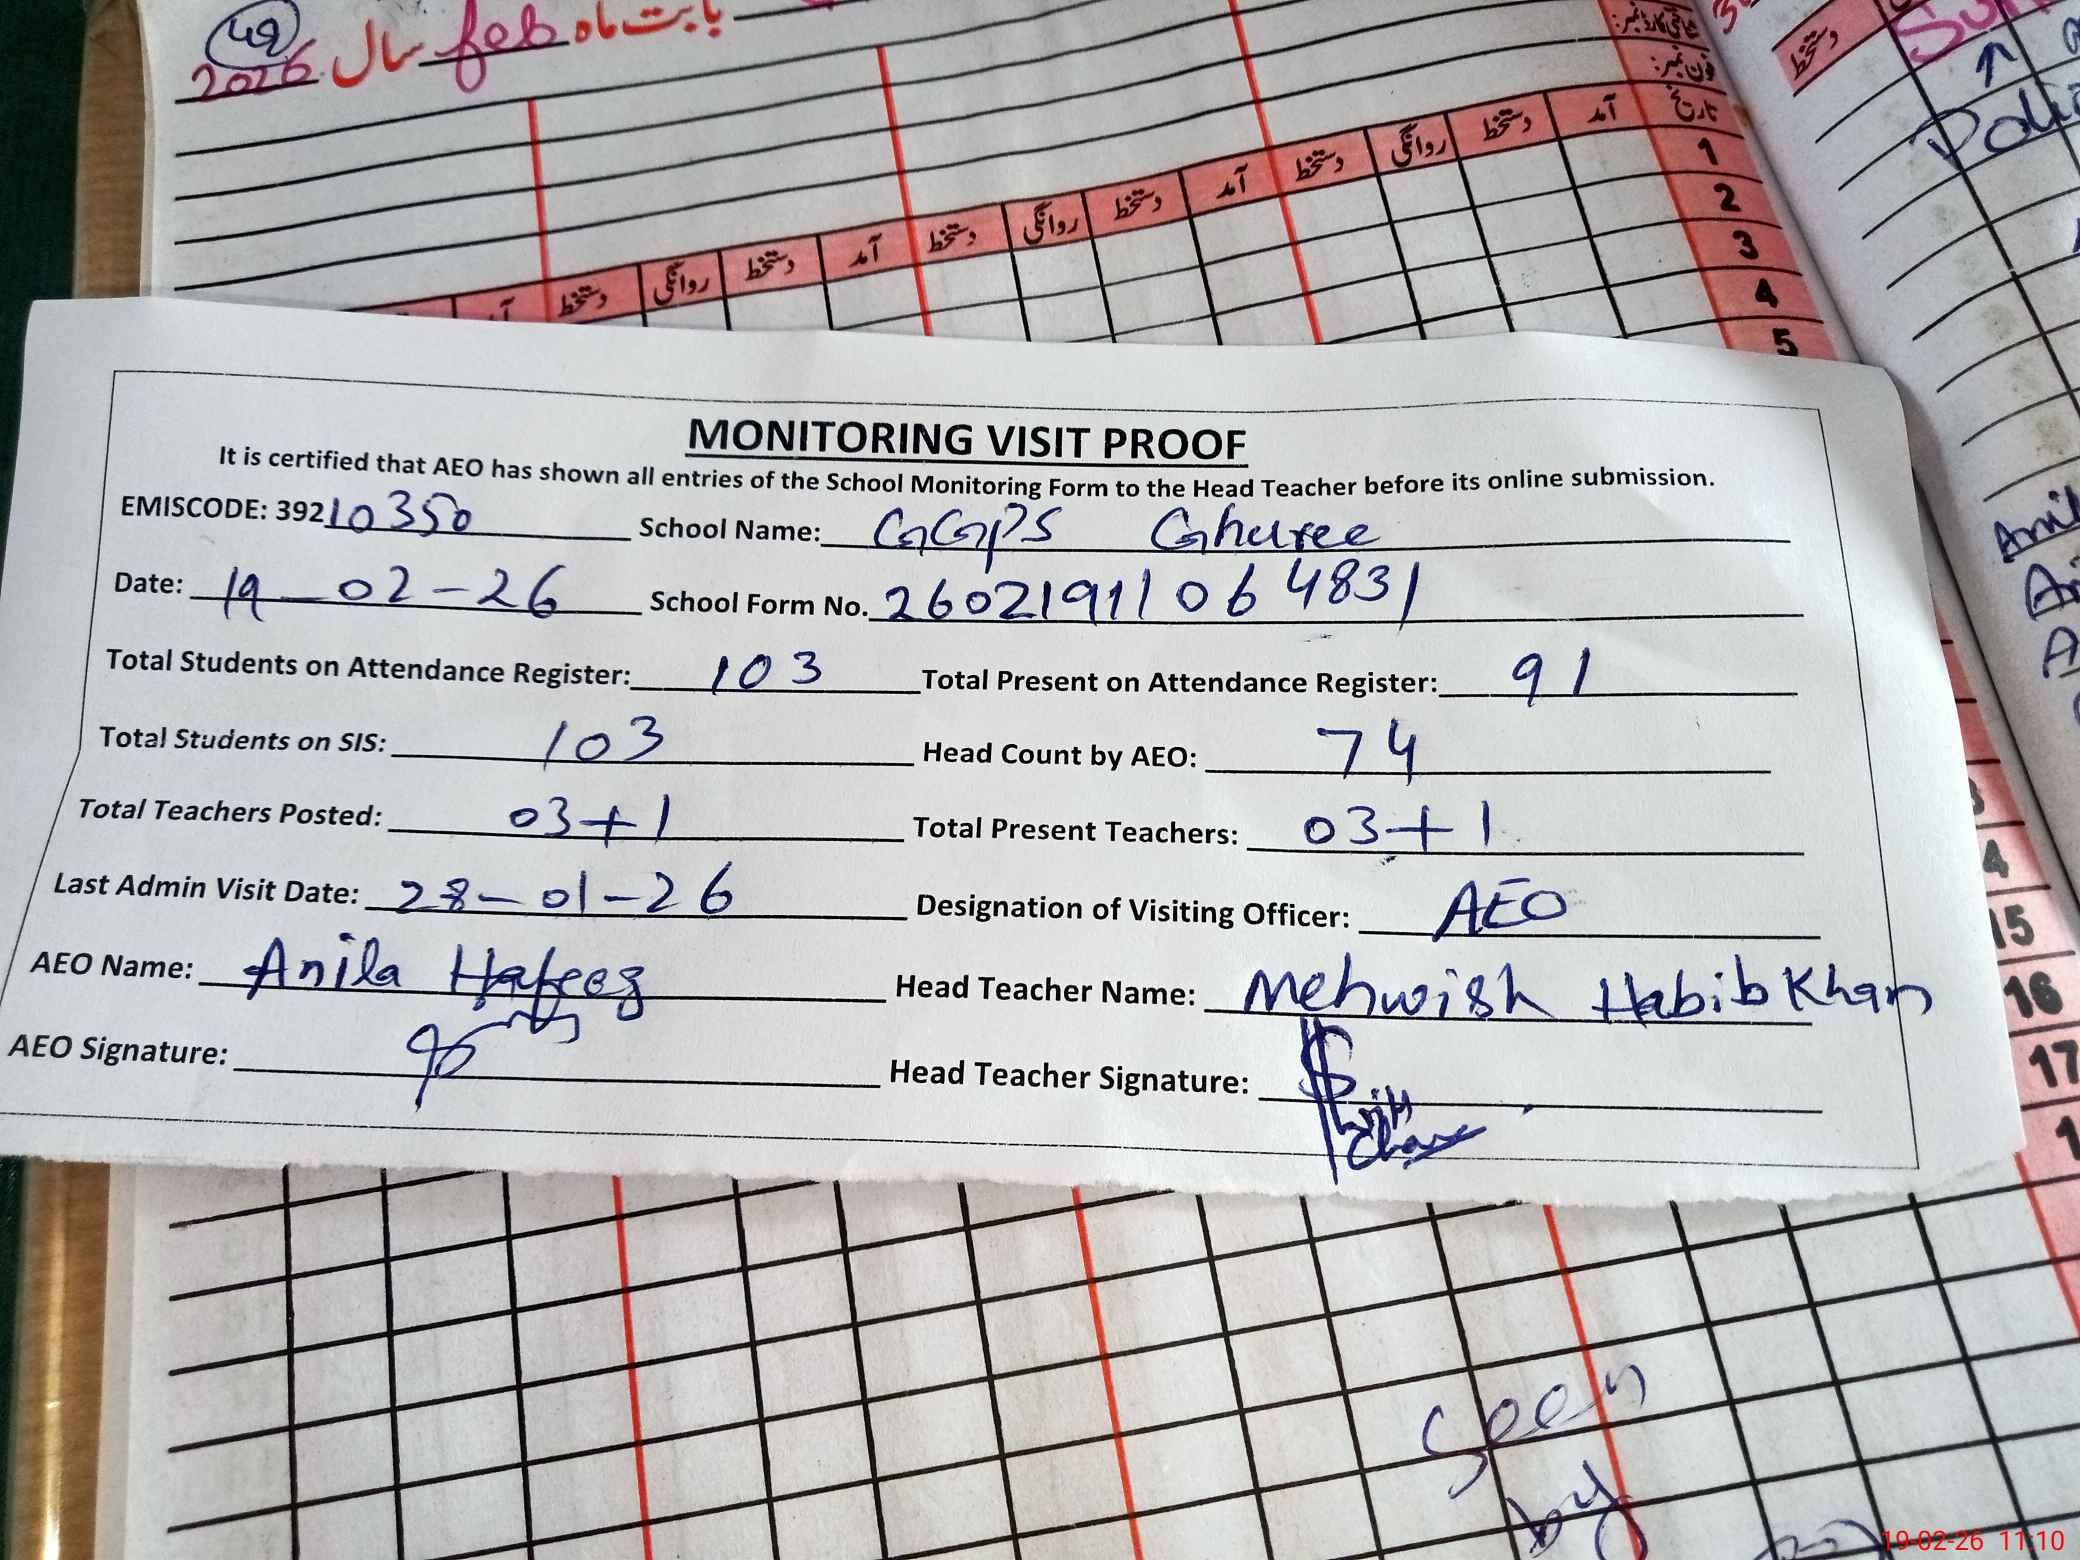 49
بابت ماہ feb سال 2026
شناختی کارڈ نمبر:
فون نمبر:
تاریخ آمد دستخط روانگی دستخط آمد دستخط روانگی دستخط آمد دستخط روانگی دستخط
دستخط
1
2
3
4
5
MONITORING VISIT PROOF
It is certified that AEO has shown all entries of the School Monitoring Form to the Head Teacher before its online submission.
EMISCODE: 39210350 School Name: GGPS Ghuree
Date: 19-02-26 School Form No. 2602191106 4831
Total Students on Attendance Register: 103 Total Present on Attendance Register: 91
Total Students on SIS: 103 Head Count by AEO: 74
Total Teachers Posted: 03+1 Total Present Teachers: 03+1
Last Admin Visit Date: 28-01-26 Designation of Visiting Officer: AEO
AEO Name: Anila Hafeez Head Teacher Name: Mehwish Habib Khan
AEO Signature: Head Teacher Signature:
15
16
17
Seen
by
19-02-26 11:10